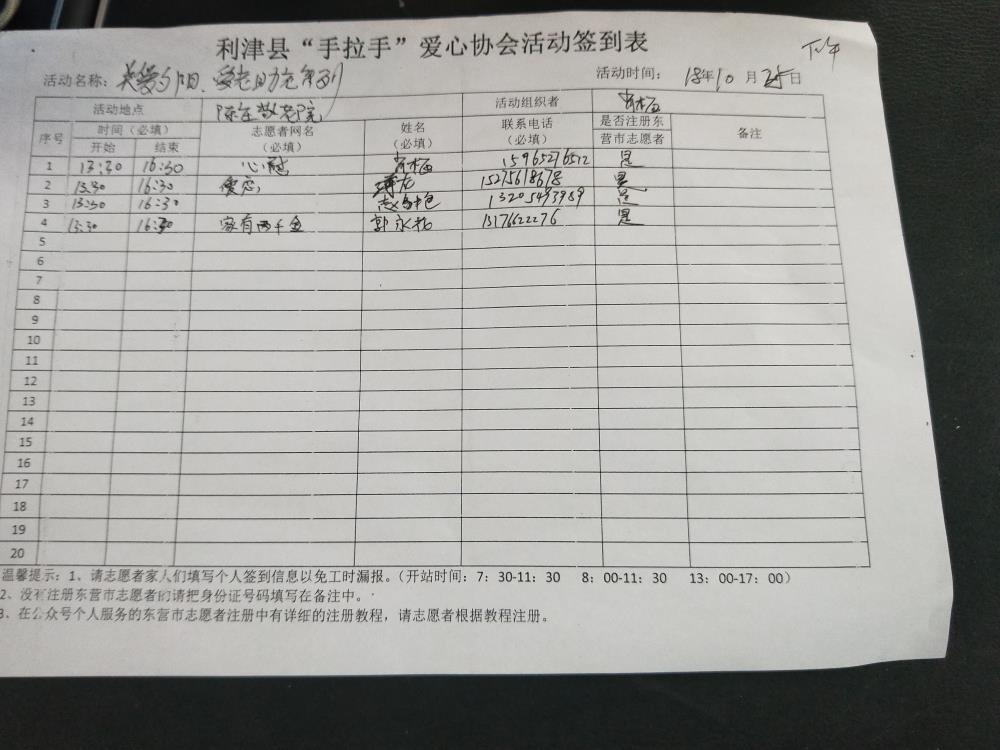 利津县“手拉手”爱心协会活动签到表
下午
活动名称：关爱夕阳、爱老助老系列 活动时间：18年10月25日
活动地点 陈庄敬老院 活动组织者
序号 时间（必填） 志愿者网名（必填） 姓名（必填） 联系电话（必填） 是否注册东营市志愿者 备注
开始 结束
1 13:30 16:30 心 15965276512 是
2 13:30 16:30 龙 15275618678 是
3 13:30 16:30 13205493989 是
4 13:30 16:30 家有两千金 郭永 13176622276 是
5
6
7
8
9
10
11
12
13
14
15
16
17
18
19
20
温馨提示：1、请志愿者家人们填写个人签到信息以免工时漏报。（开站时间：7：30-11：30 8：00-11：30 13：00-17：00）
2、没有注册东营市志愿者的请把身份证号码填写在备注中。
3、在公众号个人服务的东营市志愿者注册中有详细的注册教程，请志愿者根据教程注册。